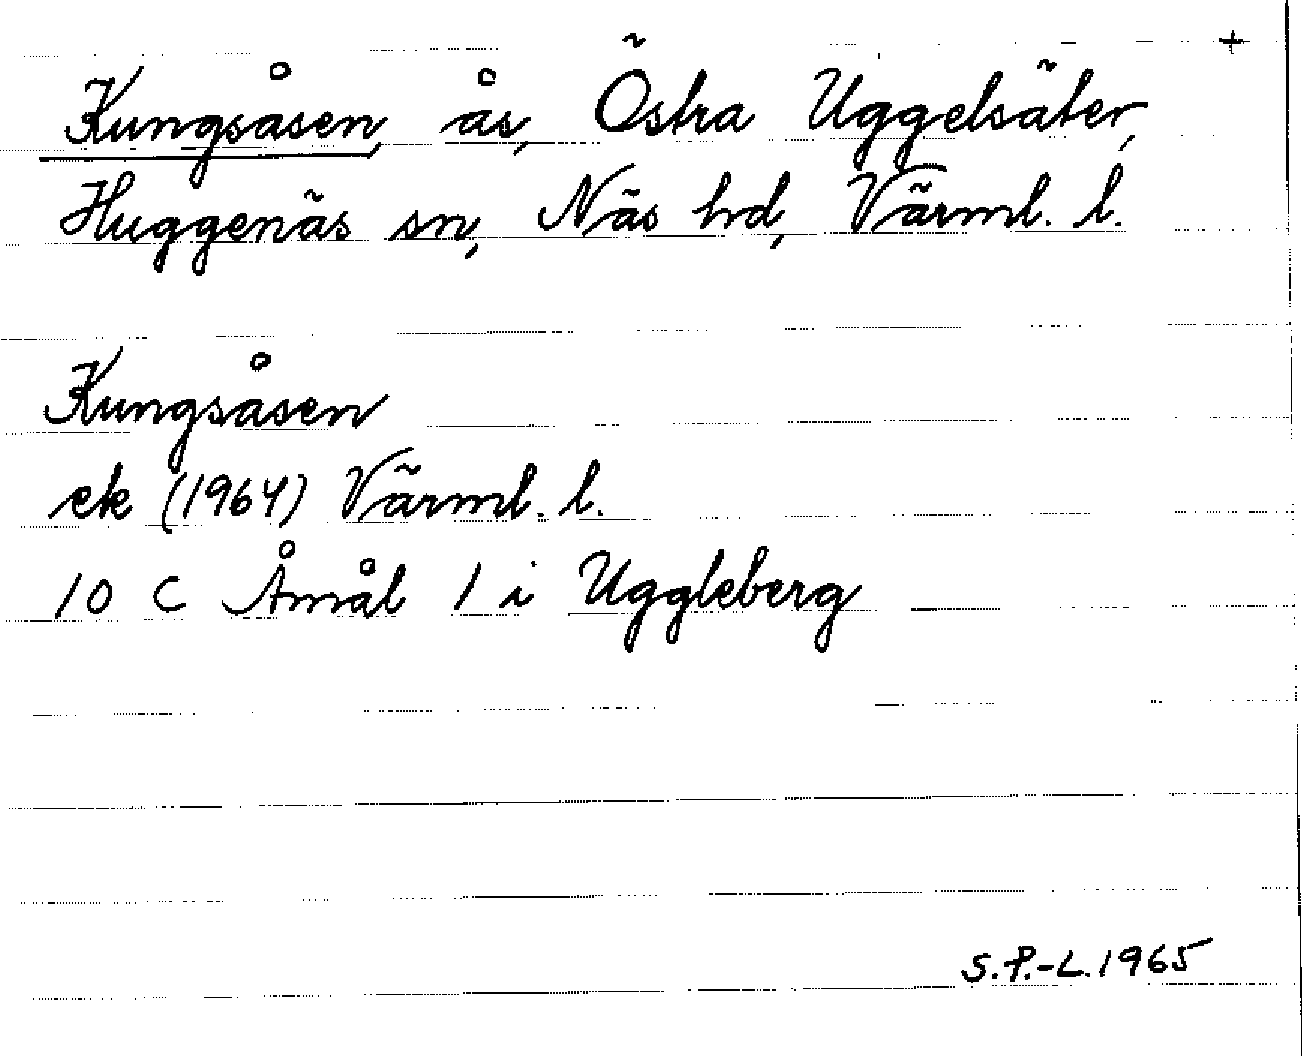 +
Kungsåsen, ås, Östra Uggelsäter,
Huggenäs sn, Näs hd, Värml. l.
Kungsåsen
ek (1964) Värml. l.
10 C Åmål 1 i Uggleberg
S.P.-L. 1965